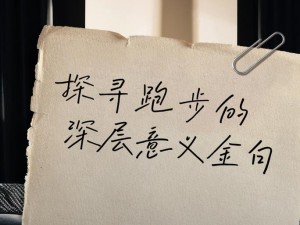 探寻跑步的
深层意义金句